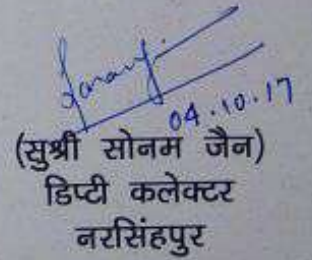 04.10.17
(सुश्री सोनम जैन)
डिप्टी कलेक्टर
नरसिंहपुर